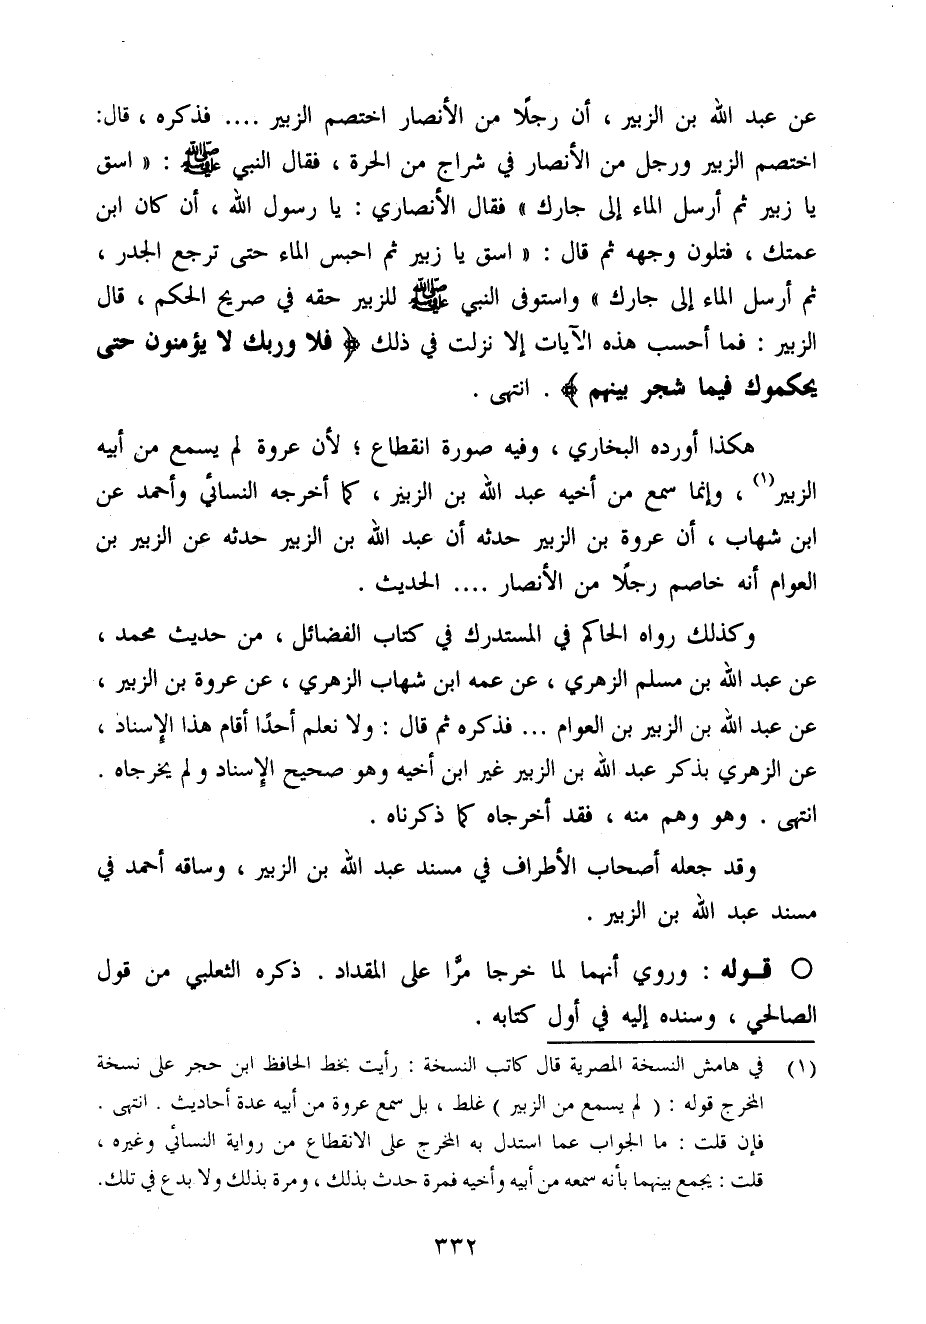 عن عبد الله بن الزبير ، أن رجلًا من الأنصار اختصم الزبير .... فذكره ، قال:
اختصم الزبير ورجل من الأنصار في شراج من الحرة ، فقال النبي ﷺ : « اسق
يا زبير ثم أرسل الماء إلى جارك » فقال الأنصاري : يا رسول الله ، أن كان ابن
عمتك ، فتلون وجهه ثم قال : « اسق يا زبير ثم احبس الماء حتى ترجع الجدر ،
ثم أرسل الماء إلى جارك » واستوفى النبي ﷺ للزبير حقه في صريح الحكم ، قال
الزبير : فما أحسب هذه الآيات إلا نزلت في ذلك ﴿ فلا وربك لا يؤمنون حتى
يحكموك فيما شجر بينهم ﴾ . انتهى .
هكذا أورده البخاري ، وفيه صورة انقطاع ؛ لأن عروة لم يسمع من أبيه
الزبير(١) ، وإنما سمع من أخيه عبد الله بن الزبير ، كما أخرجه النسائي وأحمد عن
ابن شهاب ، أن عروة بن الزبير حدثه أن عبد الله بن الزبير حدثه عن الزبير بن
العوام أنه خاصم رجلًا من الأنصار .... الحديث .
وكذلك رواه الحاكم في المستدرك في كتاب الفضائل ، من حديث محمد ،
عن عبد الله بن مسلم الزهري ، عن عمه ابن شهاب الزهري ، عن عروة بن الزبير ،
عن عبد الله بن الزبير بن العوام ... فذكره ثم قال : ولا نعلم أحدًا أقام هذا الإسناد ،
عن الزهري بذكر عبد الله بن الزبير غير ابن أخيه وهو صحيح الإسناد ولم يخرجاه .
انتهى . وهو وهم منه ، فقد أخرجاه كما ذكرناه .
وقد جعله أصحاب الأطراف في مسند عبد الله بن الزبير ، وساقه أحمد في
مسند عبد الله بن الزبير .
○ قـوله : وروي أنهما لما خرجا مرَّا على المقداد . ذكره الثعلبي من قول
الصالحي ، وسنده إليه في أول كتابه .
(١) في هامش النسخة المصرية قال كاتب النسخة : رأيت بخط الحافظ ابن حجر على نسخة
المخرج قوله : ( لم يسمع من الزبير ) غلط ، بل سمع عروة من أبيه عدة أحاديث . انتهى .
فإن قلت : ما الجواب عما استدل به المخرج على الانقطاع من رواية النسائي وغيره ،
قلت : يجمع بينهما بأنه سمعه من أبيه وأخيه فمرة حدث بذلك ، ومرة بذلك ولا بدع في تلك.
٣٣٢